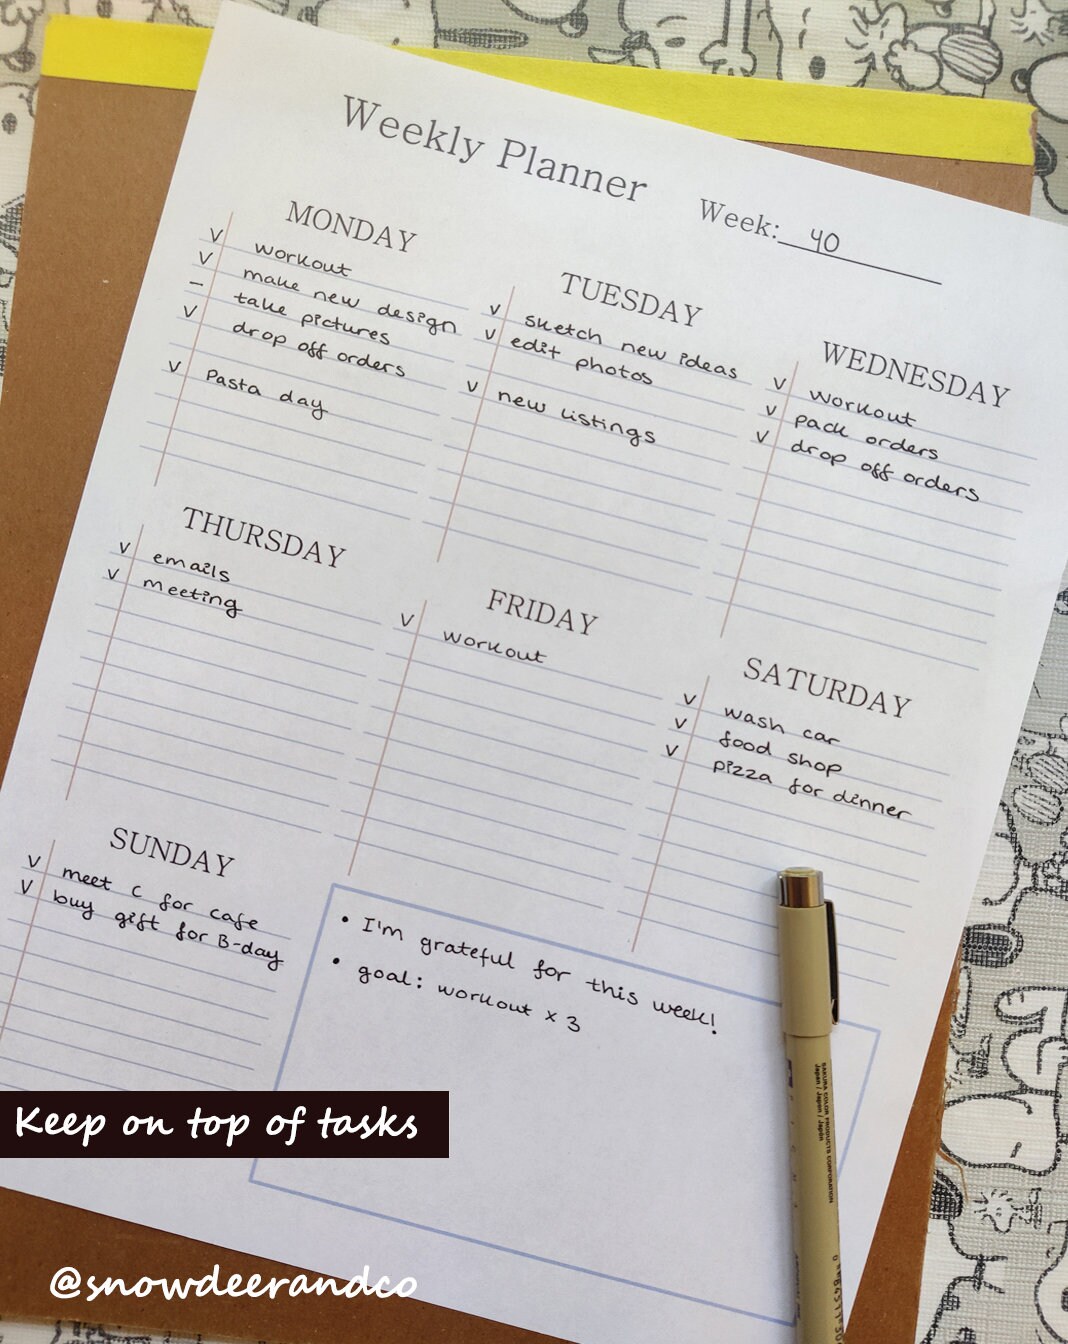 Weekly Planner
Week: 40
MONDAY
v workout
v make new design
– take pictures
v drop off orders
v Pasta day
TUESDAY
v sketch new ideas
v edit photos
v new listings
WEDNESDAY
v workout
v pack orders
v drop off orders
THURSDAY
v emails
v meeting
FRIDAY
v workout
SATURDAY
v wash car
v food shop
v pizza for dinner
SUNDAY
v meet C for cafe
v buy gift for B-day
• I'm grateful for this week!
• goal: workout x 3
SAKURA COLOR PRODUCTS CORPORATION
Japan / Japon / Japón
Keep on top of tasks
@snowdeerandco